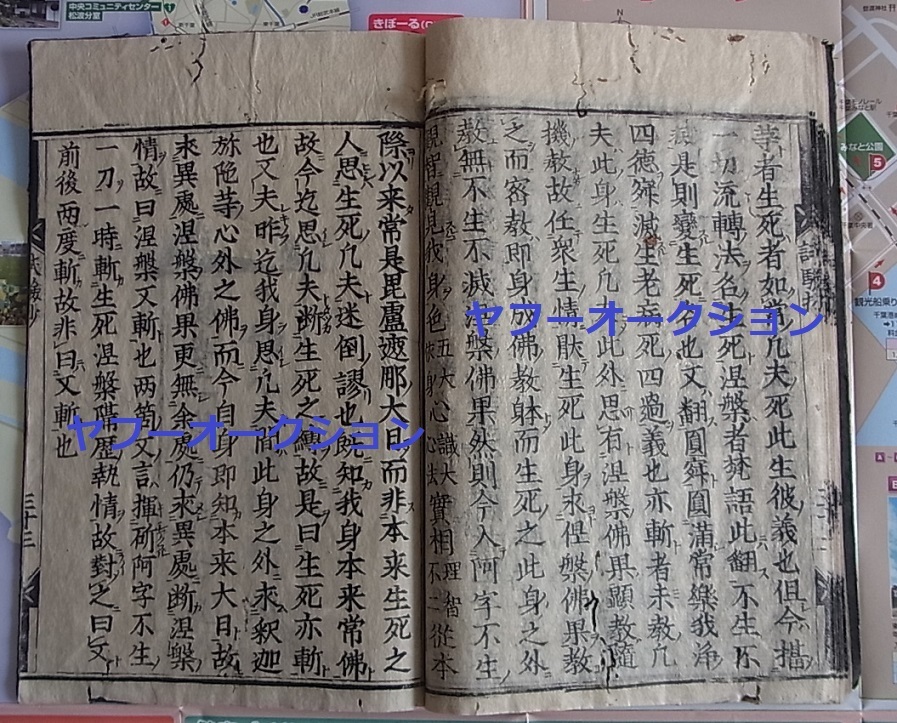 等者生死者如常凡夫死此生彼義也但今搢
一切流轉法名生死涅槃者梵語此翻不生不
滅是則變生死也又翻圓寂圓滿常樂我淨
四德寂滅生老病死四過義也亦斬者未教凡
夫此身生死凡此外思有涅槃佛果顯教隨
機教故任衆生情肰生死此身求涅槃佛果教
之而密教即身成佛教躰而生死之此身之外
教無不生不滅涅槃佛果然則今入阿字不生
觀智觀見我身色五大心識大實相理智不二從本
際以来常是毘盧遮那大日而非本来生死之
人思生死凡夫迷倒謬也既知我身本来常佛
故今迄思凡夫断生死之縛故是曰生死亦斬
也又夫昨迄我身思凡夫而此身之外求釈迦
弥陁䓁心外之佛而今自身即知本来大日故
求異處涅槃佛果更無余處仍求異處断涅槃
情故曰涅槃又斬也两箇文言揮斫阿字不生
一刀一時斬生死涅槃隔歴執情故對之曰文
前後两度斬故非曰又斬也
三十三
ヤフーオークション
ヤフーオークション
中央コミュニティセンター
松波分室
きぼーる
みなと公園
5
4
観光船乗り